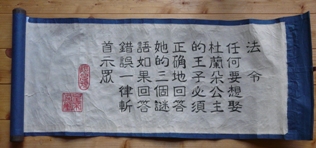 法令
任何要想娶
杜蘭朵公主
的王子必須
正确地回答
她的三個謎
語如果回答
錯誤一律斬
首示眾